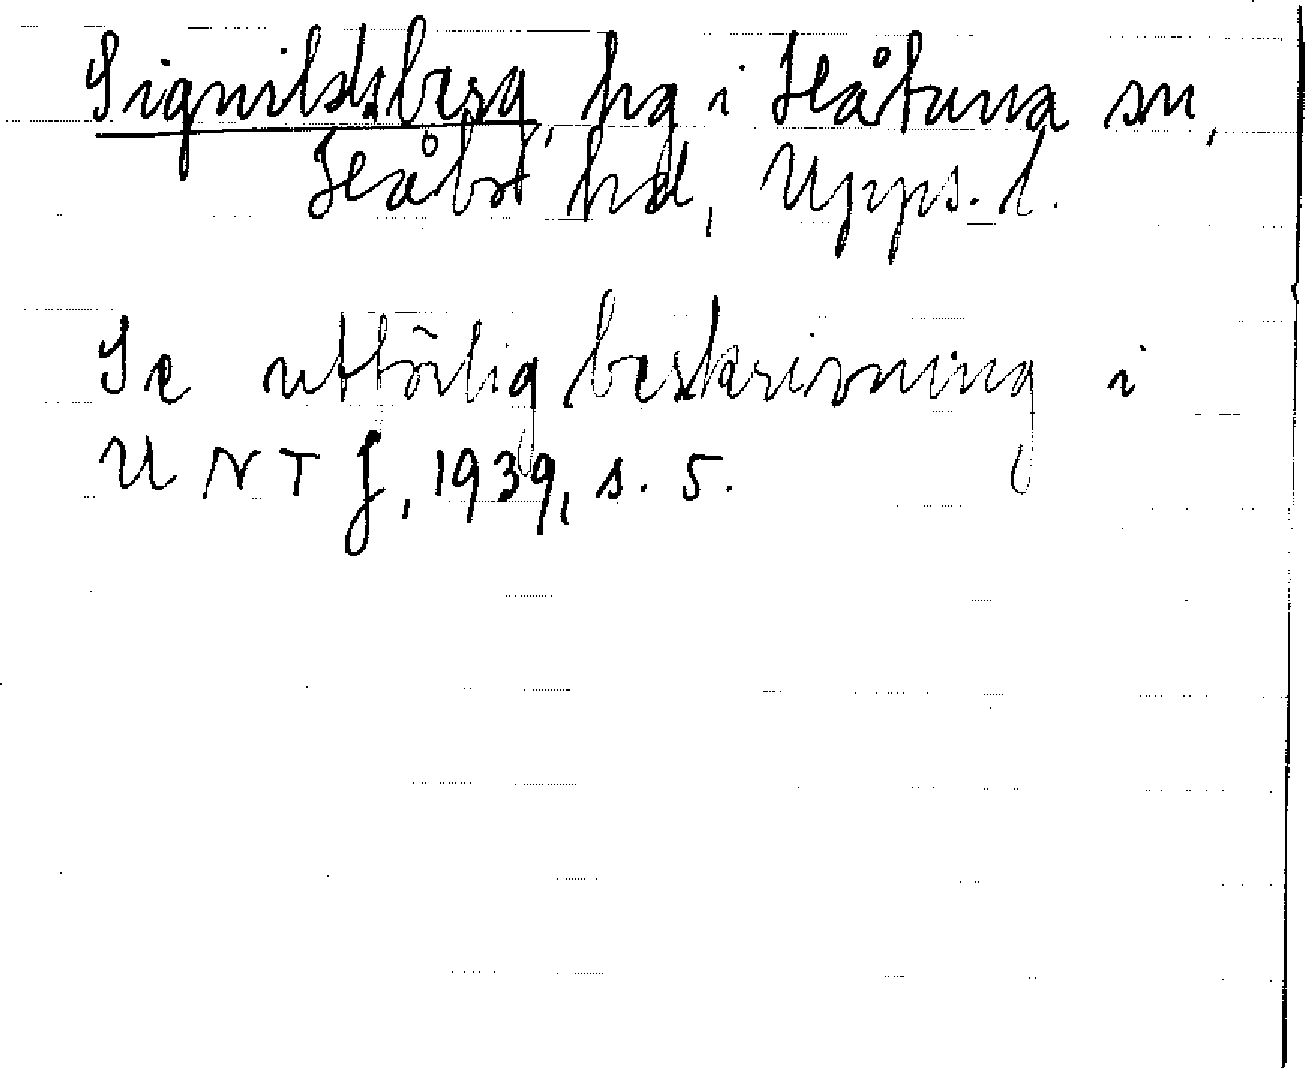 Signildsberg, hg i Håtuna sn,
Håbo hd, Upps. l.
Se utförlig beskrivning i
UNTJ, 1939, s. 5.